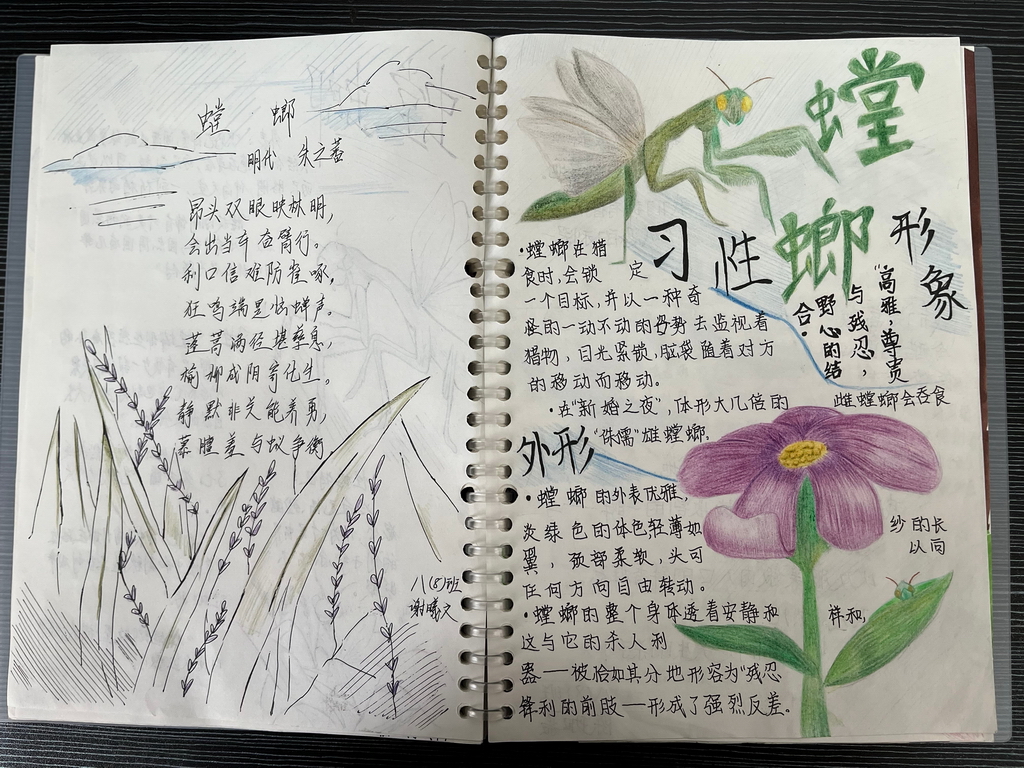 螳 螂
明代 朱之蕃
昂头双眼映林明，
会出当车奋臂行。
利口信难防雀啄，
狂鸣端是恼蝉声。
蓬蒿满径堪孳息，
榆柳成阴寄化生。
静默非关能养勇，
慕膻羞与蚁争衡
八(8)班
谢曦文
螳
螂
习性
形象
"高雅，尊贵
与残忍，
野心的结
合。
·螳螂在猎
食时，会锁 定
一个目标，并以一种奇
怪的一动不动的姿势去监视着
猎物，目光紧锁，脑袋随着对方
的移动而移动。
·在"新婚之夜"，体形大几倍的 雌螳螂会吞食
"侏儒"雄螳螂。
外形
·螳螂的外表优雅，
炎绿色的体色轻薄如 纱的长
翼，颈部柔软，头可 以向
任何方向自由转动。
·螳螂的整个身体透着安静和 祥和，
这与它的杀人利
器——被恰如其分地形容为"残忍
锋利的前肢——形成了强烈反差。